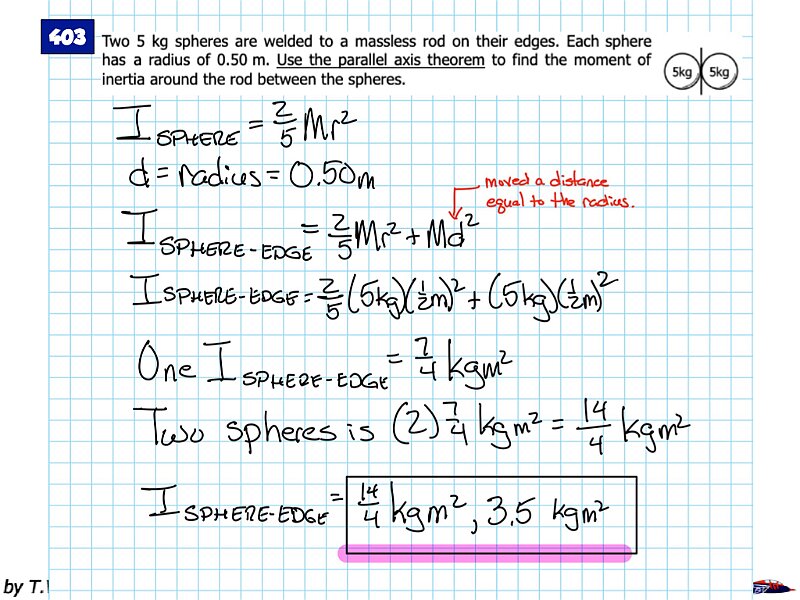 403
Two 5 kg spheres are welded to a massless rod on their edges. Each sphere
has a radius of 0.50 m. Use the parallel axis theorem to find the moment of
inertia around the rod between the spheres.
5kg 5kg
I SPHERE = 2/5 Mr²
d = radius = 0.50m
moved a distance
equal to the radius.
I SPHERE-EDGE = 2/5 Mr² + Md²
I SPHERE-EDGE = 2/5 (5kg)(1/2m)² + (5kg)(1/2m)²
One I SPHERE-EDGE = 7/4 kgm²
Two spheres is (2) 7/4 kgm² = 14/4 kgm²
I SPHERE-EDGE = 14/4 kgm², 3.5 kgm²
by T.